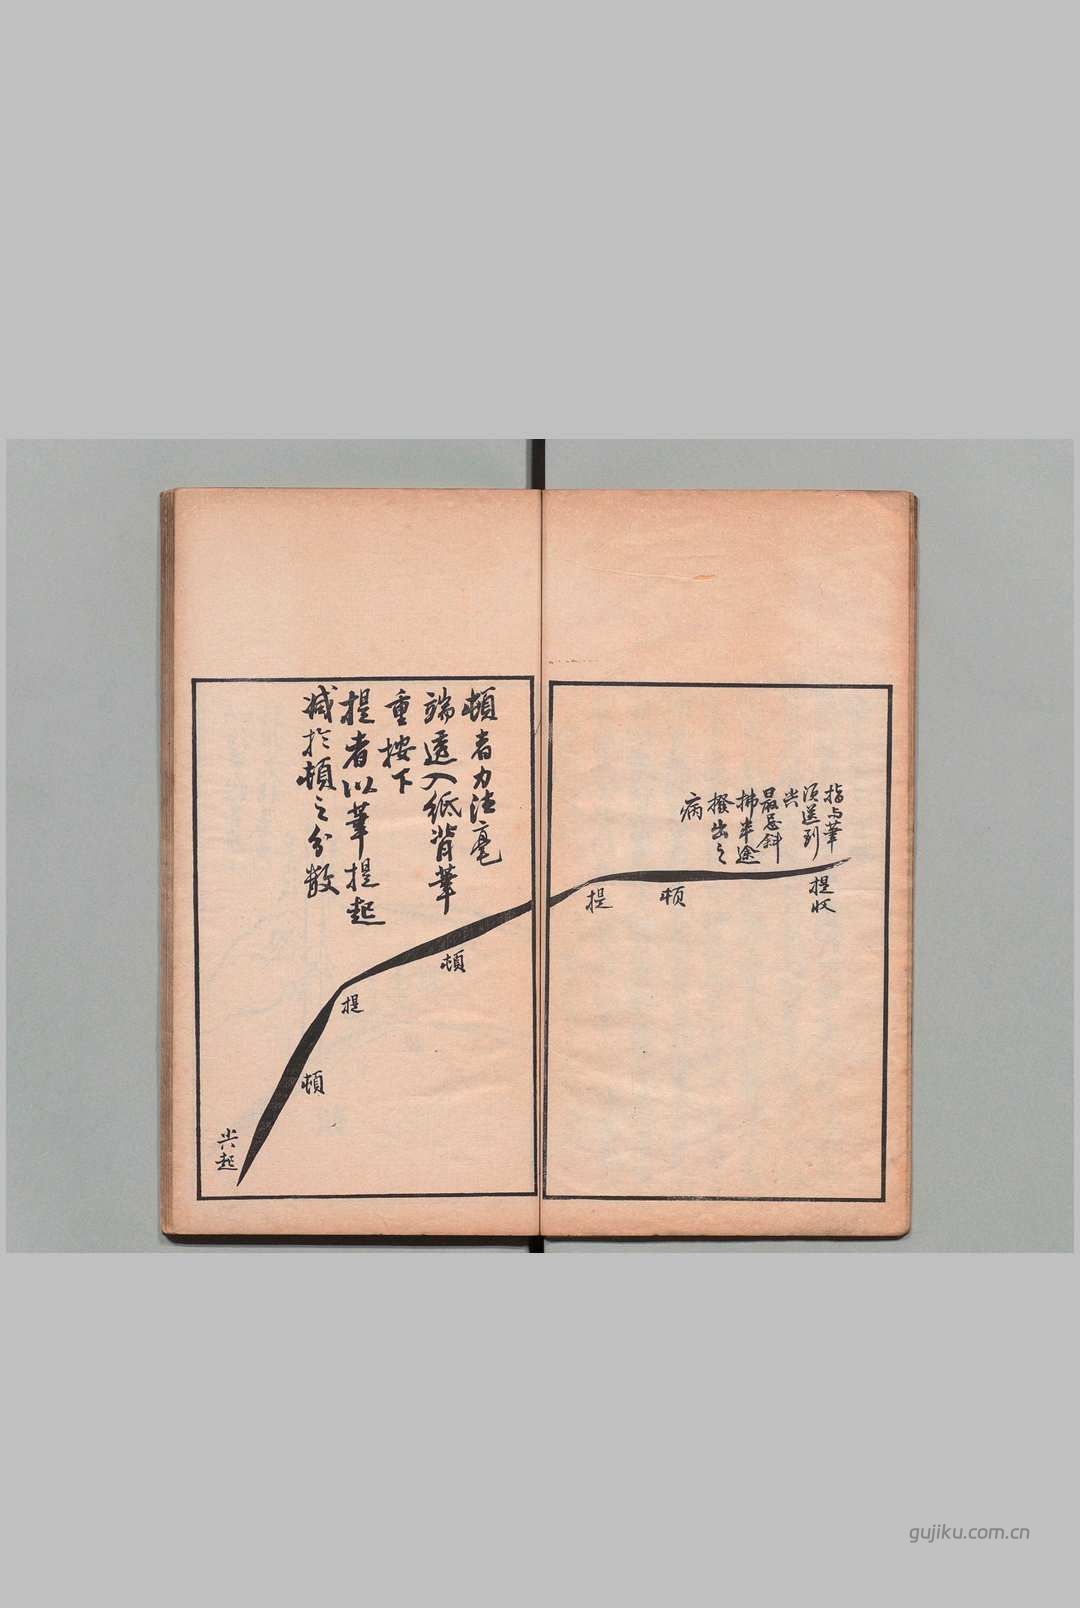 指与筆
須送到
尖
最忌斜
拂半途
撥出之
病
提收
頓
提
頓者力注毫
端透入紙背筆
重按下
提者以筆提起
減於頓之分數
頓
提
頓
尖起
gujiku.com.cn